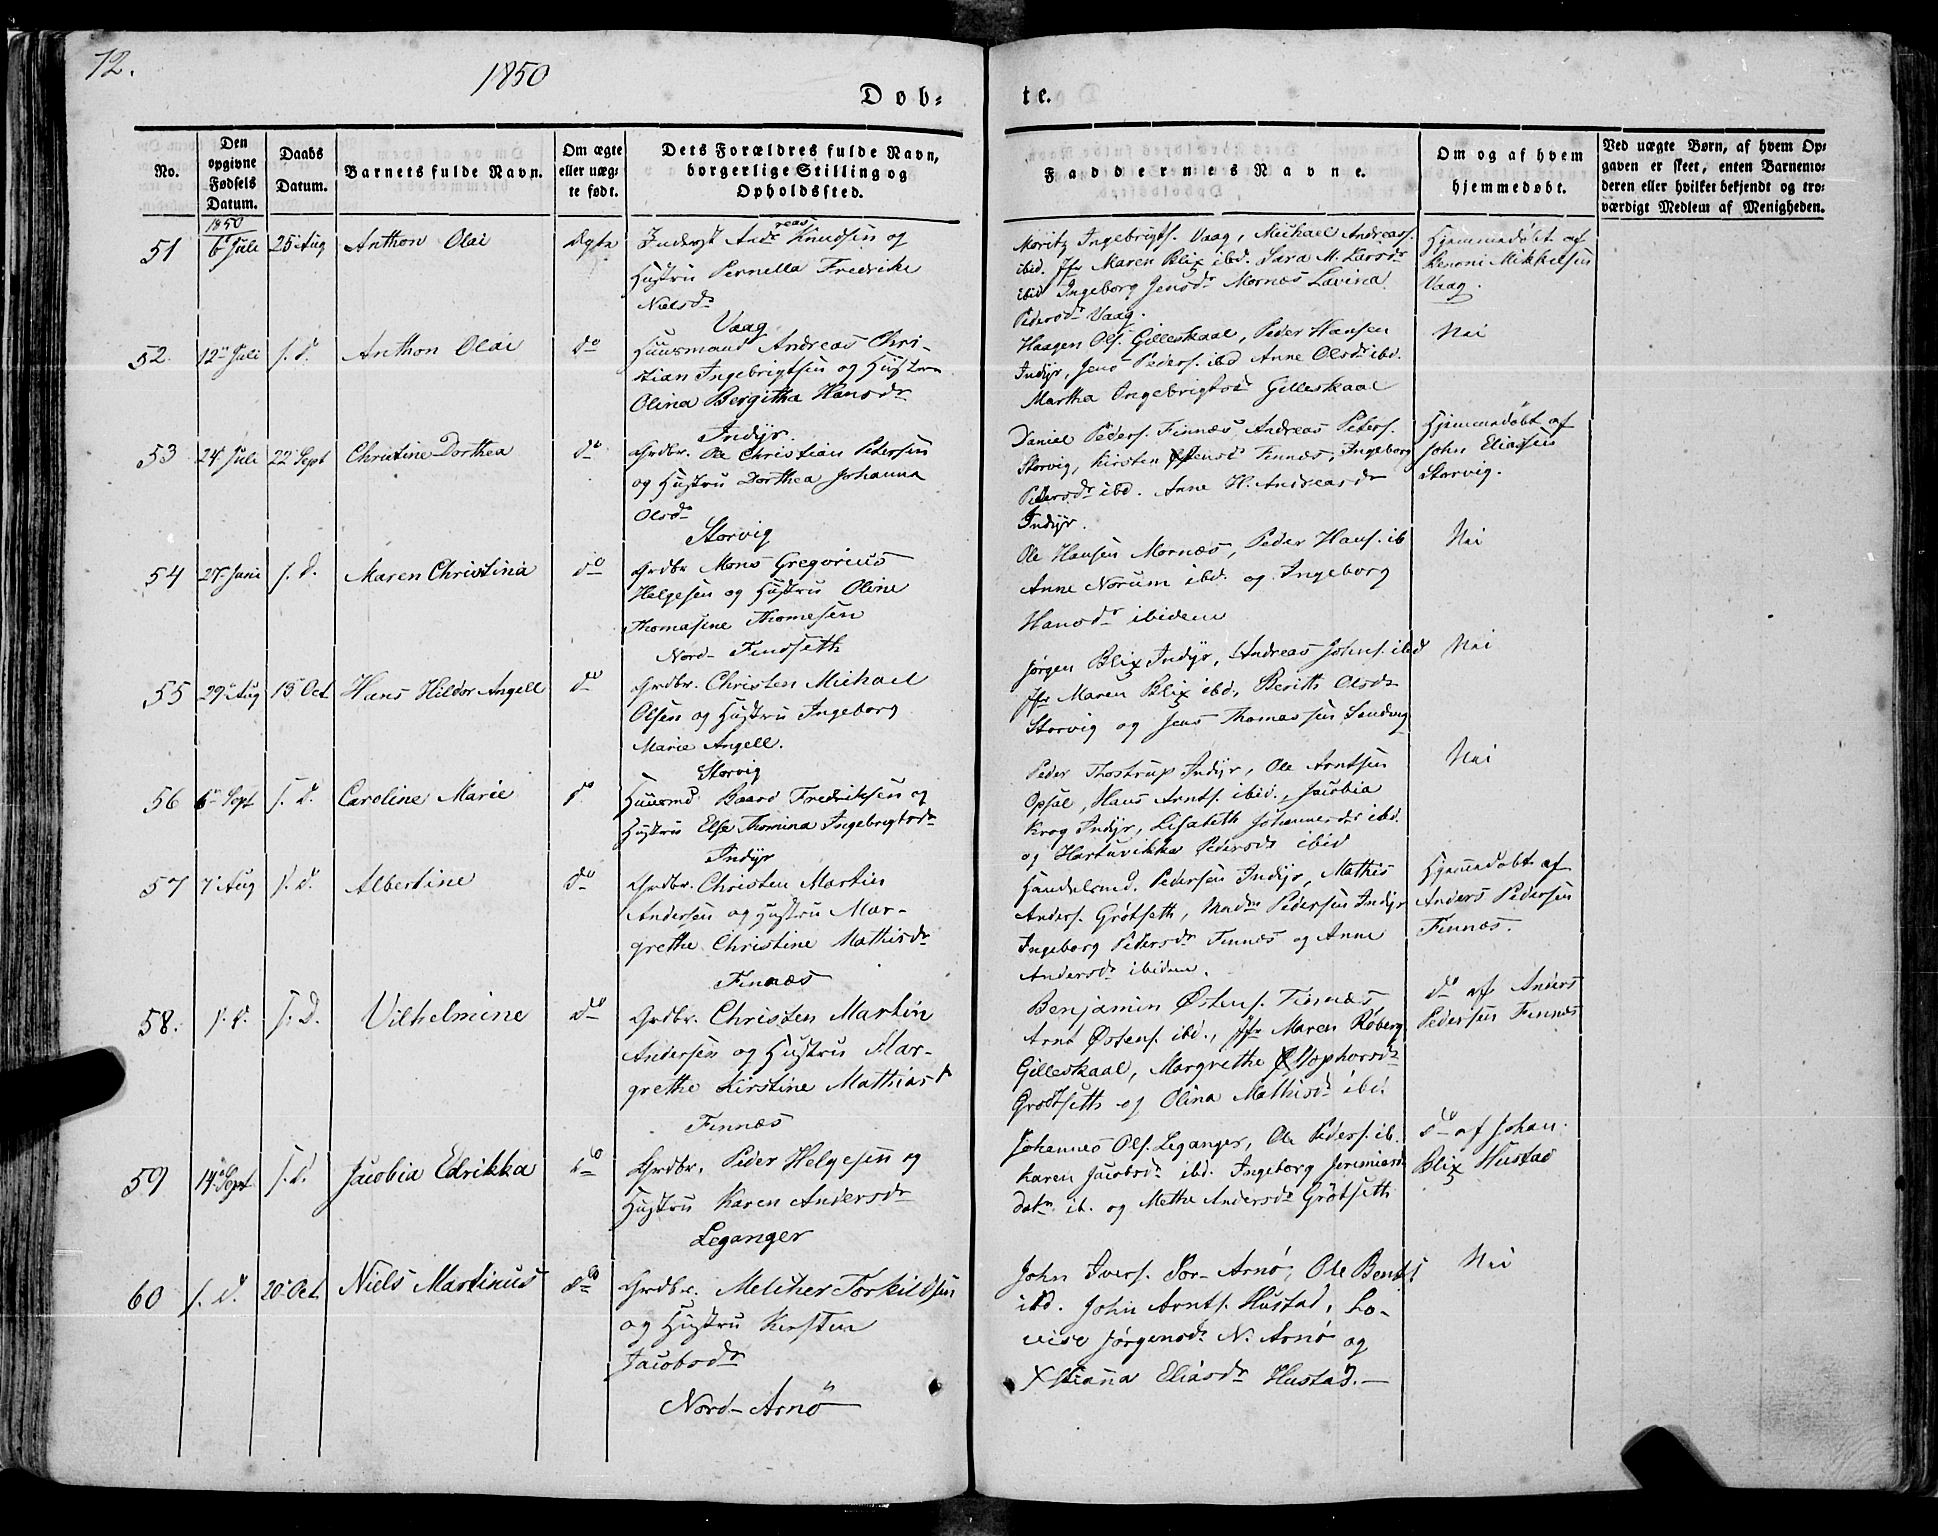 72.
1850
Døb-
te.
No.
Den opgivne Fødsels Datum.
Daabs Datum.
Barnets fulde Navn.
Om ægte eller uægte født.
Dets Forældres fulde Navn, borgerlige Stilling og Opholdssted.
Faddernes Navne.
Om og af hvem hjemmedøbt.
Ved uægte Børn, af hvem Opgaven er skeet, enten Barnemoderen eller hvilket bekjendt og troværdigt Medlem af Menigheden.
1850
51 6 Juli 25 Aug Anthon Olai Ægte
Inderst Andreas Knudsen og
Hustru Pernella Fredrike
Nielsdr
Vaag
Moritz Ingebrigts. Vaag, Mikael Andreas.
ibid. Jfr Maren Blix ibd. Sara M. Larsdr
ibid Ingeborg Jensdr Mornæs Lavina
Pedersdr Vaag.
Hjemmedøbt af
Benoni Mikkelsen
Vaag.
52. 12 Juli s. d. Anthon Olai do
Huusmand Andreas Chri-
stian Ingebrigtsen og Hustru
Olina Bergitha Hansdr
Indyr.
Haagen Ols. Gilleskaal, Peder Hansen
Indyr, Jens Peders. ibd Anne Olsdr ibd.
Martha Ingebrigtsd Gilleskaal
Nei
53 24 Juli 22 Sept Christine Dorthea do
Grdbr. Ole Christian Petersen
og Hustru Dorthea Johanna
Olsdr
Storvig
Daniel Peders. Finnæs, Andreas Peters.
Storvig, Kirsten Østensdr Finnæs, Ingeborg
Pedersdr ibd. Anne H. Andreasdr
Indyr.
Hjemmedøbt af
John Eliassen
Storvig.
54 27 Juni s. d. Maren Christina do
Grdbr Mons Gregorius
Helgesen og Hustru Oline
Thomasine Thomesen
Nord- Findseth
Ole Hansen Mornæs, Peder Hans. ib
Anne Norum ibd. og Ingeborg
Hansdr ibidem
Nei
55 29 Aug 15 Oct Hans Hildor Angell do
Grdbr. Christen Michael
Olsen og Hustru Ingeborg
Marie Angell.
Storvig
Jørgen Blix Indyr, Andreas Johns. ibd
Jfr Maren Blix ibd, Berith Olsdr
Storvig og Jens Thomassen Sandvig
Nei
56 6 Sept s. d. Caroline Marie do
Huusmd Baard Fredriksen og
Hustru Else Thomina Ingebrigtsdr
Indyr
Peder Thostrup Indyr, Ole Arntsen
Opsal, Hans Arnts. ibid., Jacobia
Krog Indyr, Lisabeth Johannesdr ibd.
og Hartuvikka Pedersdr ibid
Nei
57 7 Aug s. d. Albertine do
Grdbr. Christen Martin
Andersen og Hustru Mar-
grethe Christine Mathisdr
Finnæs
Handelsmd. Pedersen Indyr, Mathis
Anders. Grötseth, Madm Pedersen Indyr
Ingeborg Pedersdr Finnæs og Anne
Andersdr ibidem.
Hjemmedøbt af
Anders Pedersen
Finnæs.
58. s. d. s. d. Vilhelmine do
Grdbr. Christen Martin
Andersen og Hustru Mar-
grethe Kirstine Mathiasd
Finnæs
Benjamin Østens. Finnæs
Arnt Østens. ibd., Jfr Maren Røberg
Gilleskaal, Margrethe
Grotseth og Olina Mathisdr ibd.
do af Anders
Pedersen Finnæs
59 14 Sept s. d. Jacobia Edrikka do
Grdbr. Peder Helgesen og
Hustru Karen Andersdr
Leganger
Johannes Ols. Leganger, Ole Peders. ib.
Karen Jacobsdr ibd. Ingeborg Jeremias
datr ib. og Mette Andersdr Grötseth
do af Johan
Blix Hustad
60 s. d. 20 Oct. Niels Martinus do
Grdbr. Melcher Torkildsen
og Hustru Kirsten
Jacobsdr
Nord-Arnö
John Ivers. Sør-Arnø, Ole Bents
ibd. John Arnts. Hustad, Lo-
vise Jørgensdr N. Arnø og
Xstianna Eliasdr Hustad.
Nei